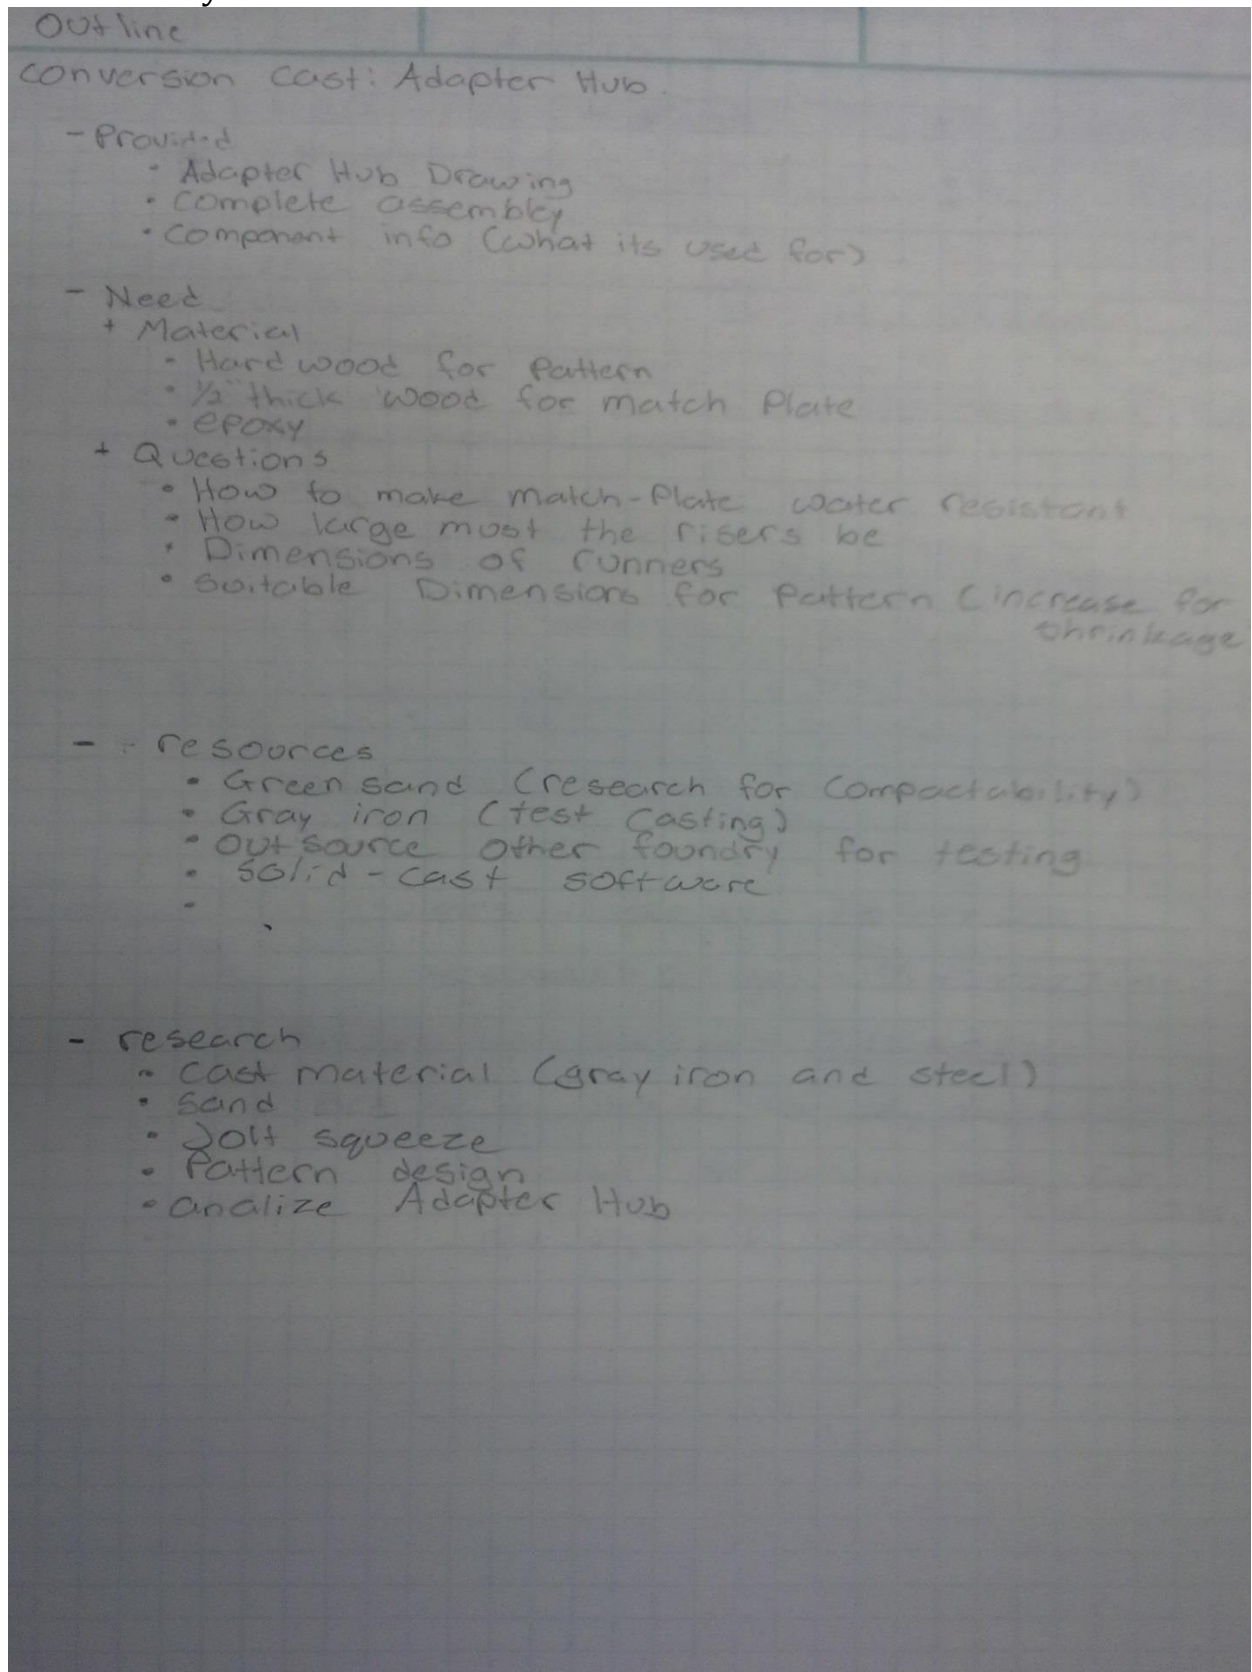 Outline
Conversion Cast: Adapter Hub.
- Provided
• Adapter Hub Drawing
• Complete assembly
• Component info (what its used for)
- Need
+ Material
• Hard wood for Pattern
• 1/2" thick wood for match Plate
• epoxy
+ Questions
• How to make match-Plate water resistant
• How large must the risers be
• Dimensions of runners
• Suitable Dimensions for Pattern (increase for
shrinkage
- - resources
• Green sand (research for Compactability)
• Gray iron (test Casting)
• outsource other foundry for testing
• Solid-cast software
•
- research
• Cast material (gray iron and steel)
• Sand
• Jolt squeeze
• Pattern design
• analize Adapter Hub